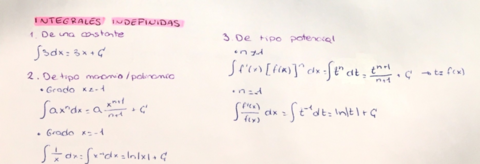 INTEGRALES INDEFINIDAS
1. De una constante
∫3dx = 3x + C
2. De tipo monomio/polinomio
• Grado x ≠ -1
∫axⁿdx = a · xⁿ⁺¹/n+1 + C
• Grado x = -1
∫1/x dx = ∫x⁻¹dx = ln|x| + C
3. De tipo potencial
• n ≠ 1
∫f'(x) [f(x)]ⁿ dx = ∫tⁿ dt = tⁿ⁺¹/n+1 + C → t = f(x)
• n = -1
∫f'(x)/f(x) dx = ∫t⁻¹dt = ln|t| + C